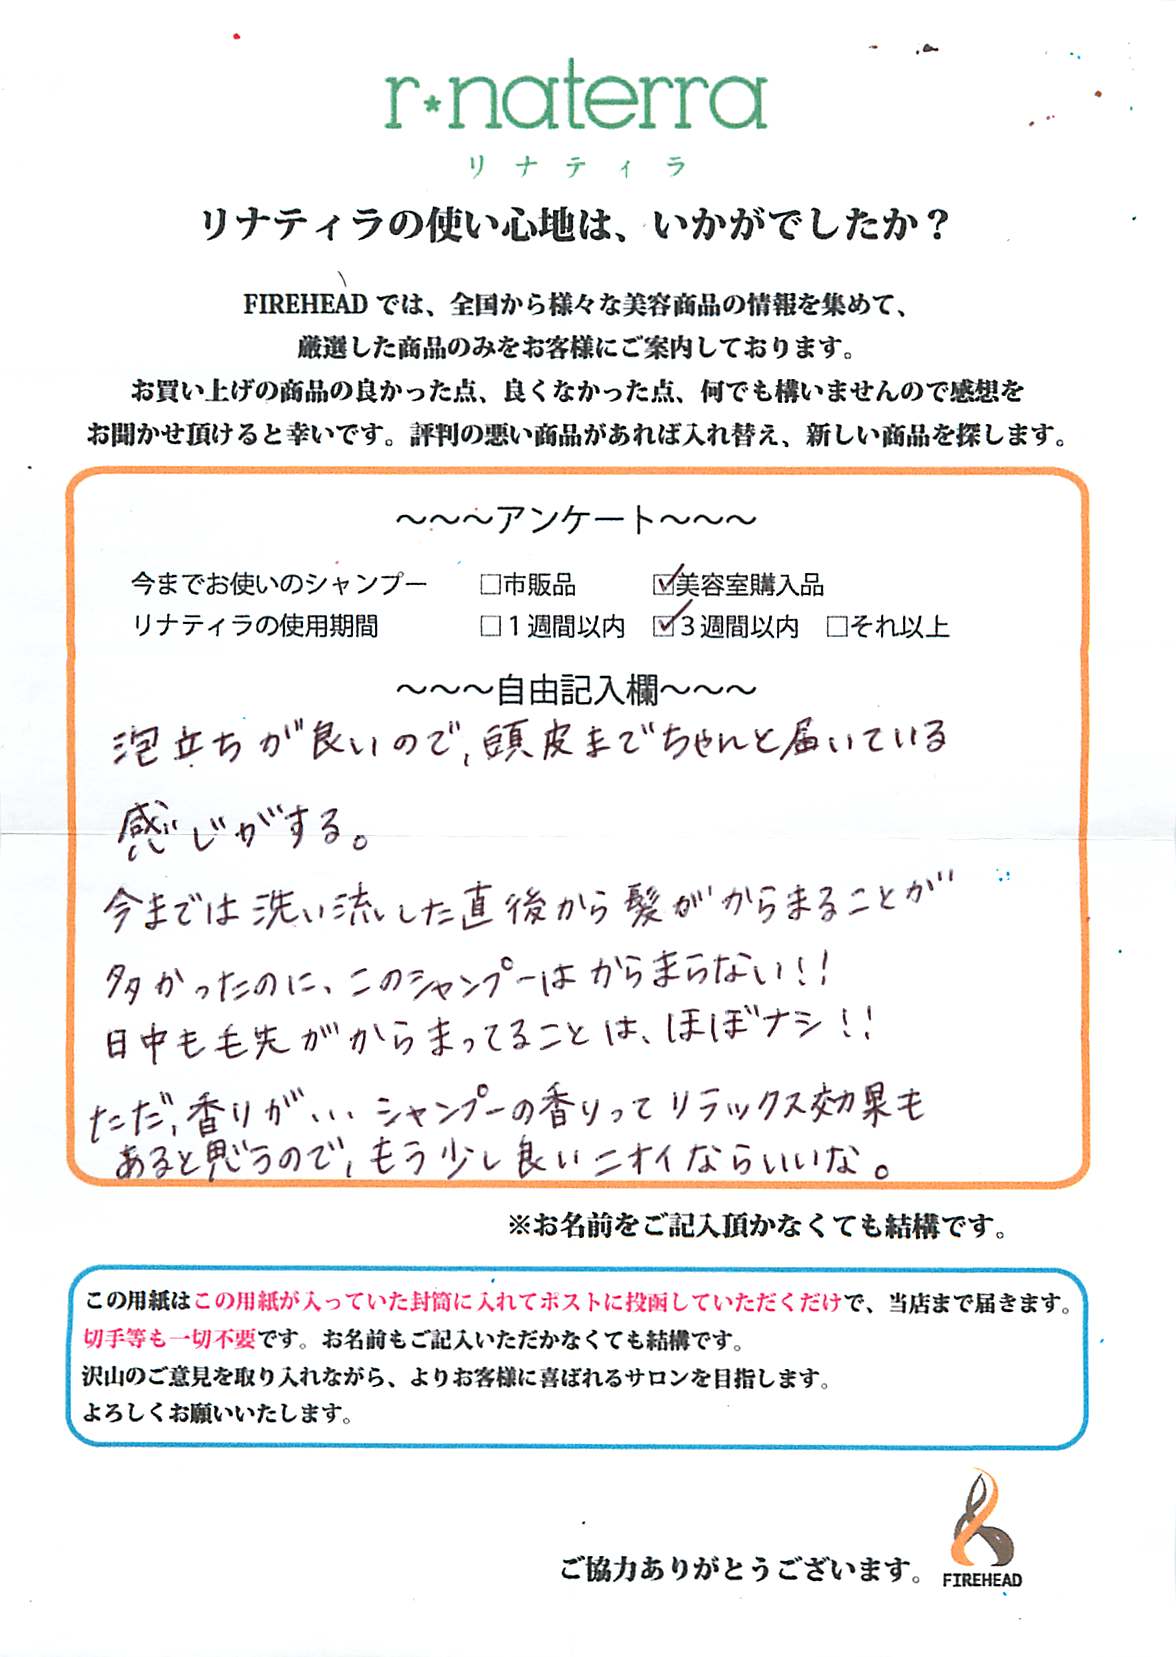 r*naterra
リナティラ
リナティラの使い心地は、いかがでしたか？
FIREHEADでは、全国から様々な美容商品の情報を集めて、
厳選した商品のみをお客様にご案内しております。
お買い上げの商品の良かった点、良くなかった点、何でも構いませんので感想を
お聞かせ頂けると幸いです。評判の悪い商品があれば入れ替え、新しい商品を探します。
～～～アンケート～～～
今までお使いのシャンプー □市販品 ☑美容室購入品
リナティラの使用期間 □１週間以内 ☑３週間以内 □それ以上
～～～自由記入欄～～～
泡立ちが良いので、頭皮までちゃんと届いている
感じがする。
今までは洗い流した直後から髪がからまることが
多かったのに、このシャンプーはからまらない！！
日中も毛先がからまってることは、ほぼナシ！！
ただ、香りが…シャンプーの香りってリラックス効果も
あると思うので、もう少し良いニオイならいいな。
※お名前をご記入頂かなくても結構です。
この用紙はこの用紙が入っていた封筒に入れてポストに投函していただくだけで、当店まで届きます。
切手等も一切不要です。お名前もご記入いただかなくても結構です。
沢山のご意見を取り入れながら、よりお客様に喜ばれるサロンを目指します。
よろしくお願いいたします。
ご協力ありがとうございます。
FIREHEAD